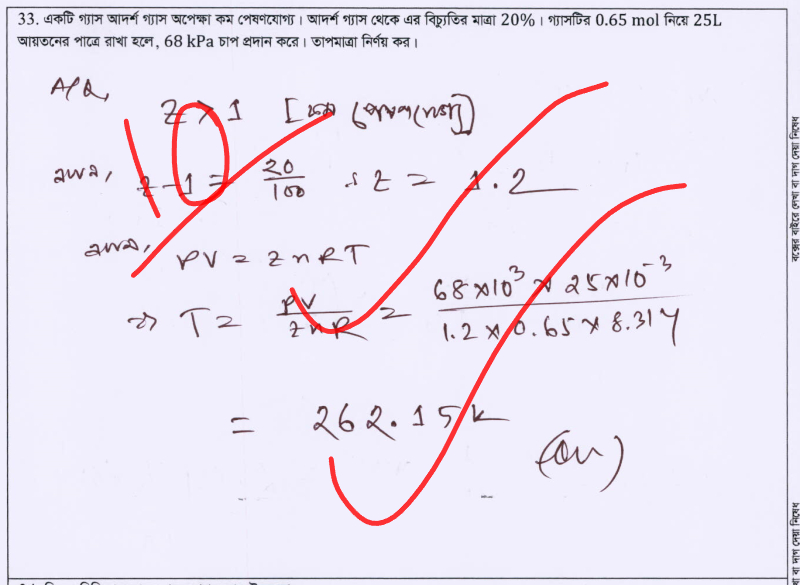 33. একটি গ্যাস আদর্শ গ্যাস অপেক্ষা কম পেষণযোগ্য। আদর্শ গ্যাস থেকে এর বিচ্যুতির মাত্রা 20%। গ্যাসটির 0.65 mol নিয়ে 25L
আয়তনের পাত্রে রাখা হলে, 68 kPa চাপ প্রদান করে। তাপমাত্রা নির্ণয় কর।
A/Q,
Z > 1 [কম পেষণযোগ্য]
আবার, z - 1 = 20/100 ∴ z = 1.2
আবার, PV = znRT
⇒ T = PV/znR = 68×10³ × 25×10⁻³/1.2 × 0.65 × 8.314
= 262.15 K
(Ans)
বক্সের বাইরে লেখা বা দাগ দেয়া নিষেধ
বা দাগ দেয়া নিষেধ